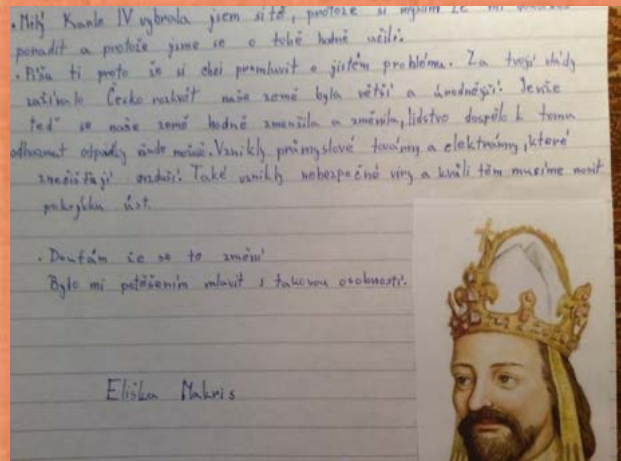 . Milý Karle IV vybrala jsem si tě, protože si myslím že mi
poradit a protože jsme se o tobě hodně učili.
. Píšu ti proto že si chci promluvit o jistém problému. Za tvojí vlády
zažívalo Česko rozkvět naše země byla větší a úrodnější. Jenže
teď se naše země hodně zmenšila a změnila, lidstvo dospělo k tomu
odhazovat odpadky všude možně. Vznikly průmyslové továrny a elektrárny, které
znečišťují ovzduší. Také vznikly nebezpečné viry a kvůli těm musíme nosit
pokrývku úst.
. Doufám že se to změní
Bylo mi potěšením mluvit s takovou osobností.
Eliška Makris